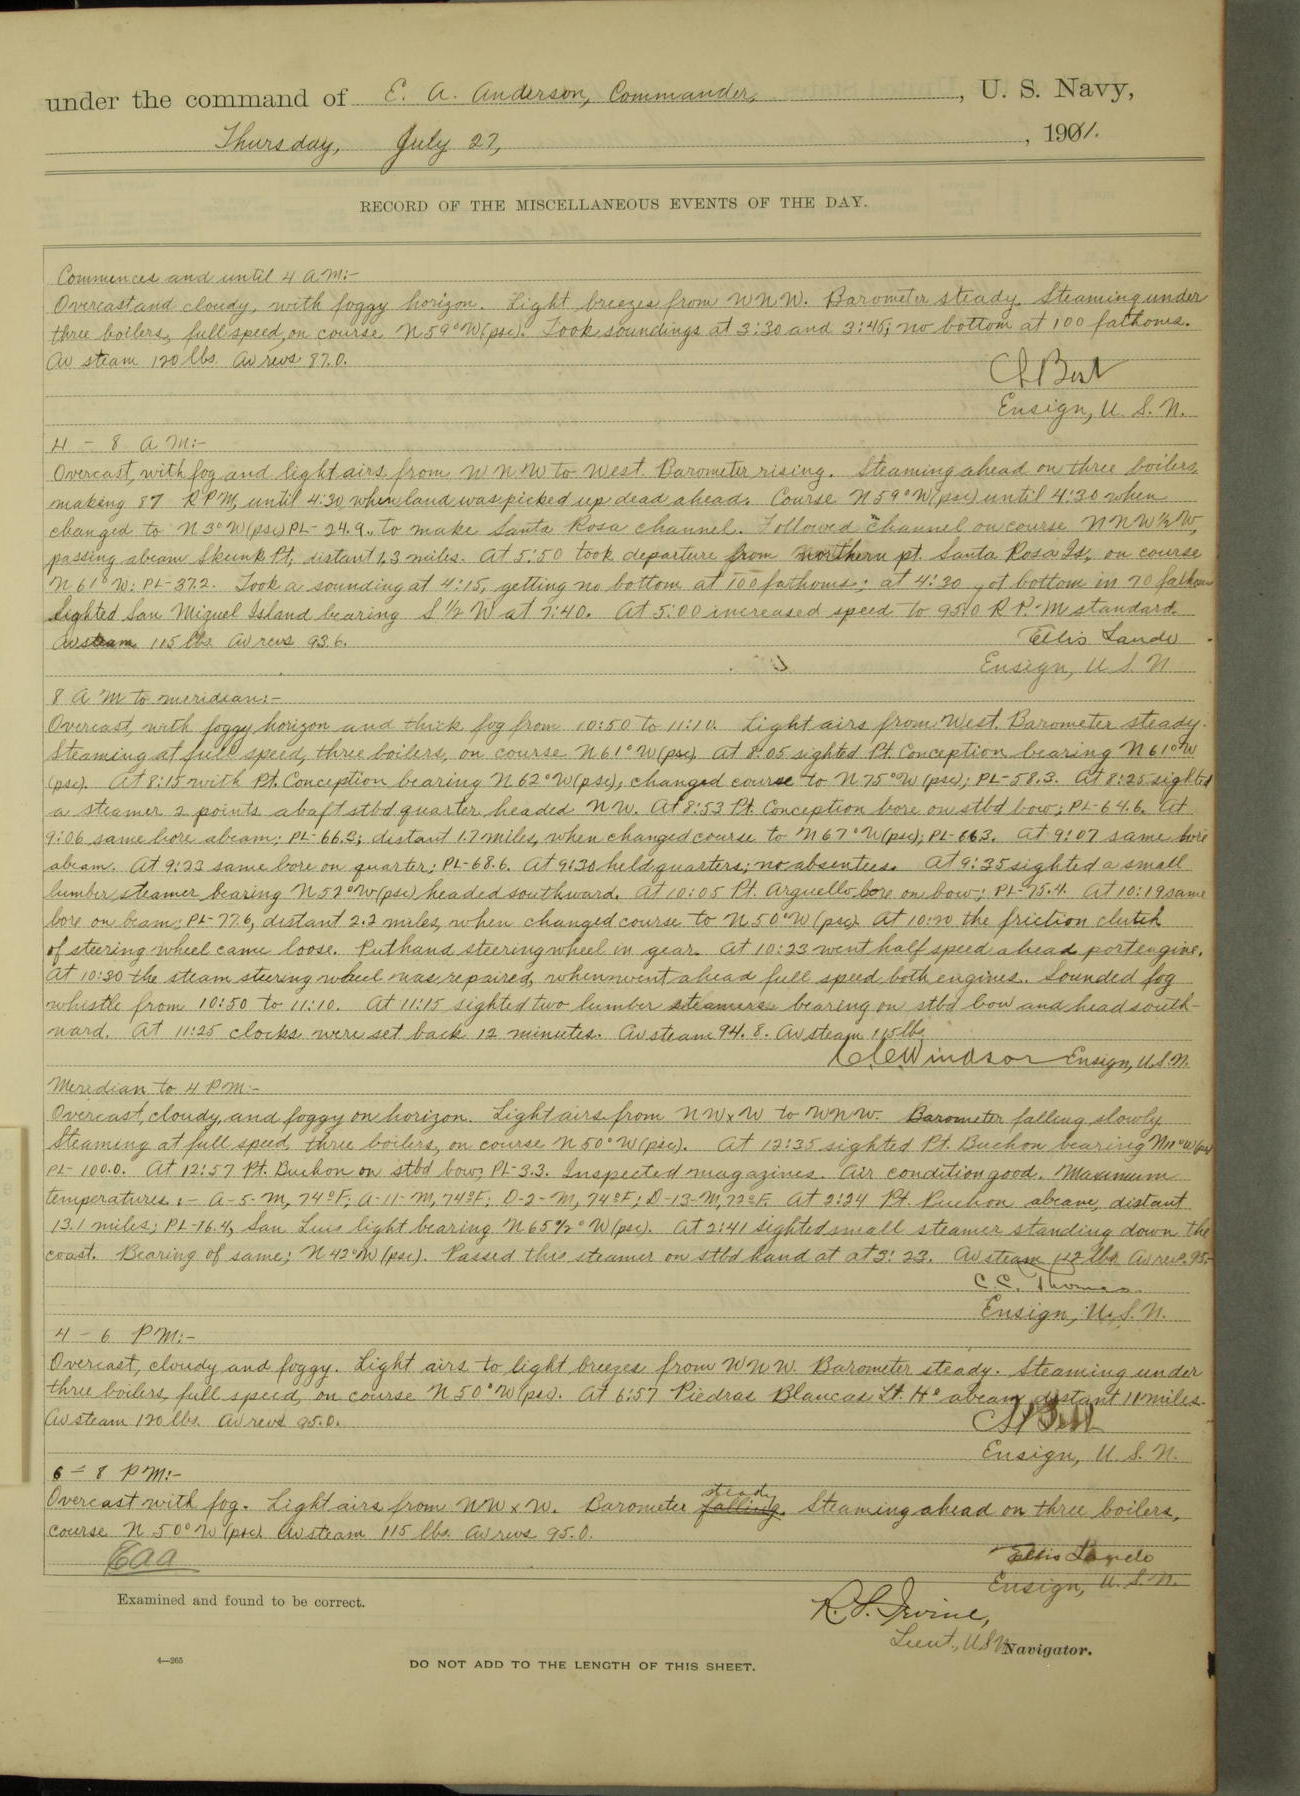 under the command of E. A. Anderson, Commander, , U. S. Navy,
Thursday, July 27, , 1901.
RECORD OF THE MISCELLANEOUS EVENTS OF THE DAY.
Commences and until 4 A.M:-
Overcast and cloudy, with foggy horizon. Light breezes from WNW. Barometer steady. Steaming under
three boilers, full speed, on course N59°W(psc). Took soundings at 3:30 and 3:45; no bottom at 100 fathoms.
Av steam 120 lbs. Av revs 87.0.
Ensign, U. S. N.
4 - 8 A M:-
Overcast, with fog and light airs from WNW to West. Barometer rising. Steaming ahead on three boilers
making 87 RPM, until 4:30 when land was picked up dead ahead. Course N59°W(psc) until 4:30 when
changed to N3°W(psc) PL- 24.9. to make Santa Rosa channel. Followed channel on course NNW½W,
passing abeam Skunk Pt, distant 1.3 miles. At 5:50 took departure from northern pt. Santa Rosa Is, on course
N61°W: PL-37.2. Took a sounding at 4:15, getting no bottom at 100 fathoms; at 4:30 got bottom in 70 fathoms
Sighted San Miguel Island bearing S½W at 7:40. At 5:00 increased speed to 95.0 R.P.M standard.
Av steam 115 lbs. Av revs 93.6.
Ellis Lando
Ensign, U S N
8 A M to meridian:-
Overcast, with foggy horizon and thick fog from 10:50 to 11:10. Light airs from West. Barometer steady.
Steaming at full speed, three boilers, on course N61°W(psc) At 8:05 sighted Pt. Conception bearing N61°W
(psc). At 8:15 with Pt. Conception bearing N62°W(psc), changed course to N75°W(psc); PL-58.3. At 8:25 sighted
a steamer 2 points abaft stbd quarter headed NW. At 8:53 Pt. Conception bore on stbd bow; PL-64.6. At
9:06 same bore abeam; PL-66.3; distant 1.7 miles, when changed course to N67°W(psc), PL-66.3. At 9:07 same bore
abeam. At 9:23 same bore on quarter; PL-68.6. At 9:30 held quarters; no absentees. At 9:35 sighted a small
lumber steamer bearing N52°W(psc) headed southward. At 10:05 Pt. Arguello bore on bow; PL-75.4. At 10:19 same
bore on beam; PL-77.6, distant 2.2 miles, when changed course to N50°W(psc). At 10:20 the friction clutch
of steering wheel came loose. Put hand steering wheel in gear. At 10:23 went half speed ahead port engine.
At 10:30 the steam steering wheel was repaired, when went ahead full speed both engines. Sounded fog
whistle from 10:50 to 11:10. At 11:15 sighted two lumber steamers bearing on stbd bow and head south-
ward. At 11:25 clocks were set back 12 minutes. Av steam 94.8. Av steam 115 lbs
Windsor Ensign, U.S.N.
Meridian to 4 P M:-
Overcast, cloudy, and foggy on horizon. Light airs from NWxW to WNW. Barometer falling slowly
Steaming at full speed, three boilers, on course N50°W(psc). At 12:35 sighted Pt. Buchon bearing
PL- 100.0. At 12:57 Pt. Buchon on stbd bow; PL-3.3. Inspected magazines. Air condition good. Maximum
temperatures:- A-5-M, 74°F; A-11-M, 74°F; D-2-M, 74°F; D-13-M, 72°F. At 2:24 Pt. Buchon abeam, distant
13.1 miles; PL-16.4, San Luis light bearing N65½°W(psc). At 2:41 sighted small steamer standing down the
coast. Bearing of same; N42°W(psc). Passed this steamer on stbd hand at at 3:23. Av steam 112 lbs. Av revs. 95.
C. C. Thomas
Ensign, U. S. N.
4 - 6 P M:-
Overcast, cloudy and foggy. Light airs to light breezes from WNW. Barometer steady. Steaming under
three boilers, full speed, on course N50°W(psc). At 6:57 Piedras Blancas Lt. H° abeam distant 11 miles.
Av steam 120 lbs. Av revs 95.0.
Ensign, U. S. N.
6 - 8 P M:-
steady
Overcast with fog. Light airs from NWxW. Barometer falling. Steaming ahead on three boilers,
course N50°W(psc) Av steam 115 lbs. Av revs 95.0.
EAA
Ellis Lando
Ensign, U. S. N.
Examined and found to be correct.
R. S. Irvine,
Lieut., U S N Navigator.
4—265
DO NOT ADD TO THE LENGTH OF THIS SHEET.